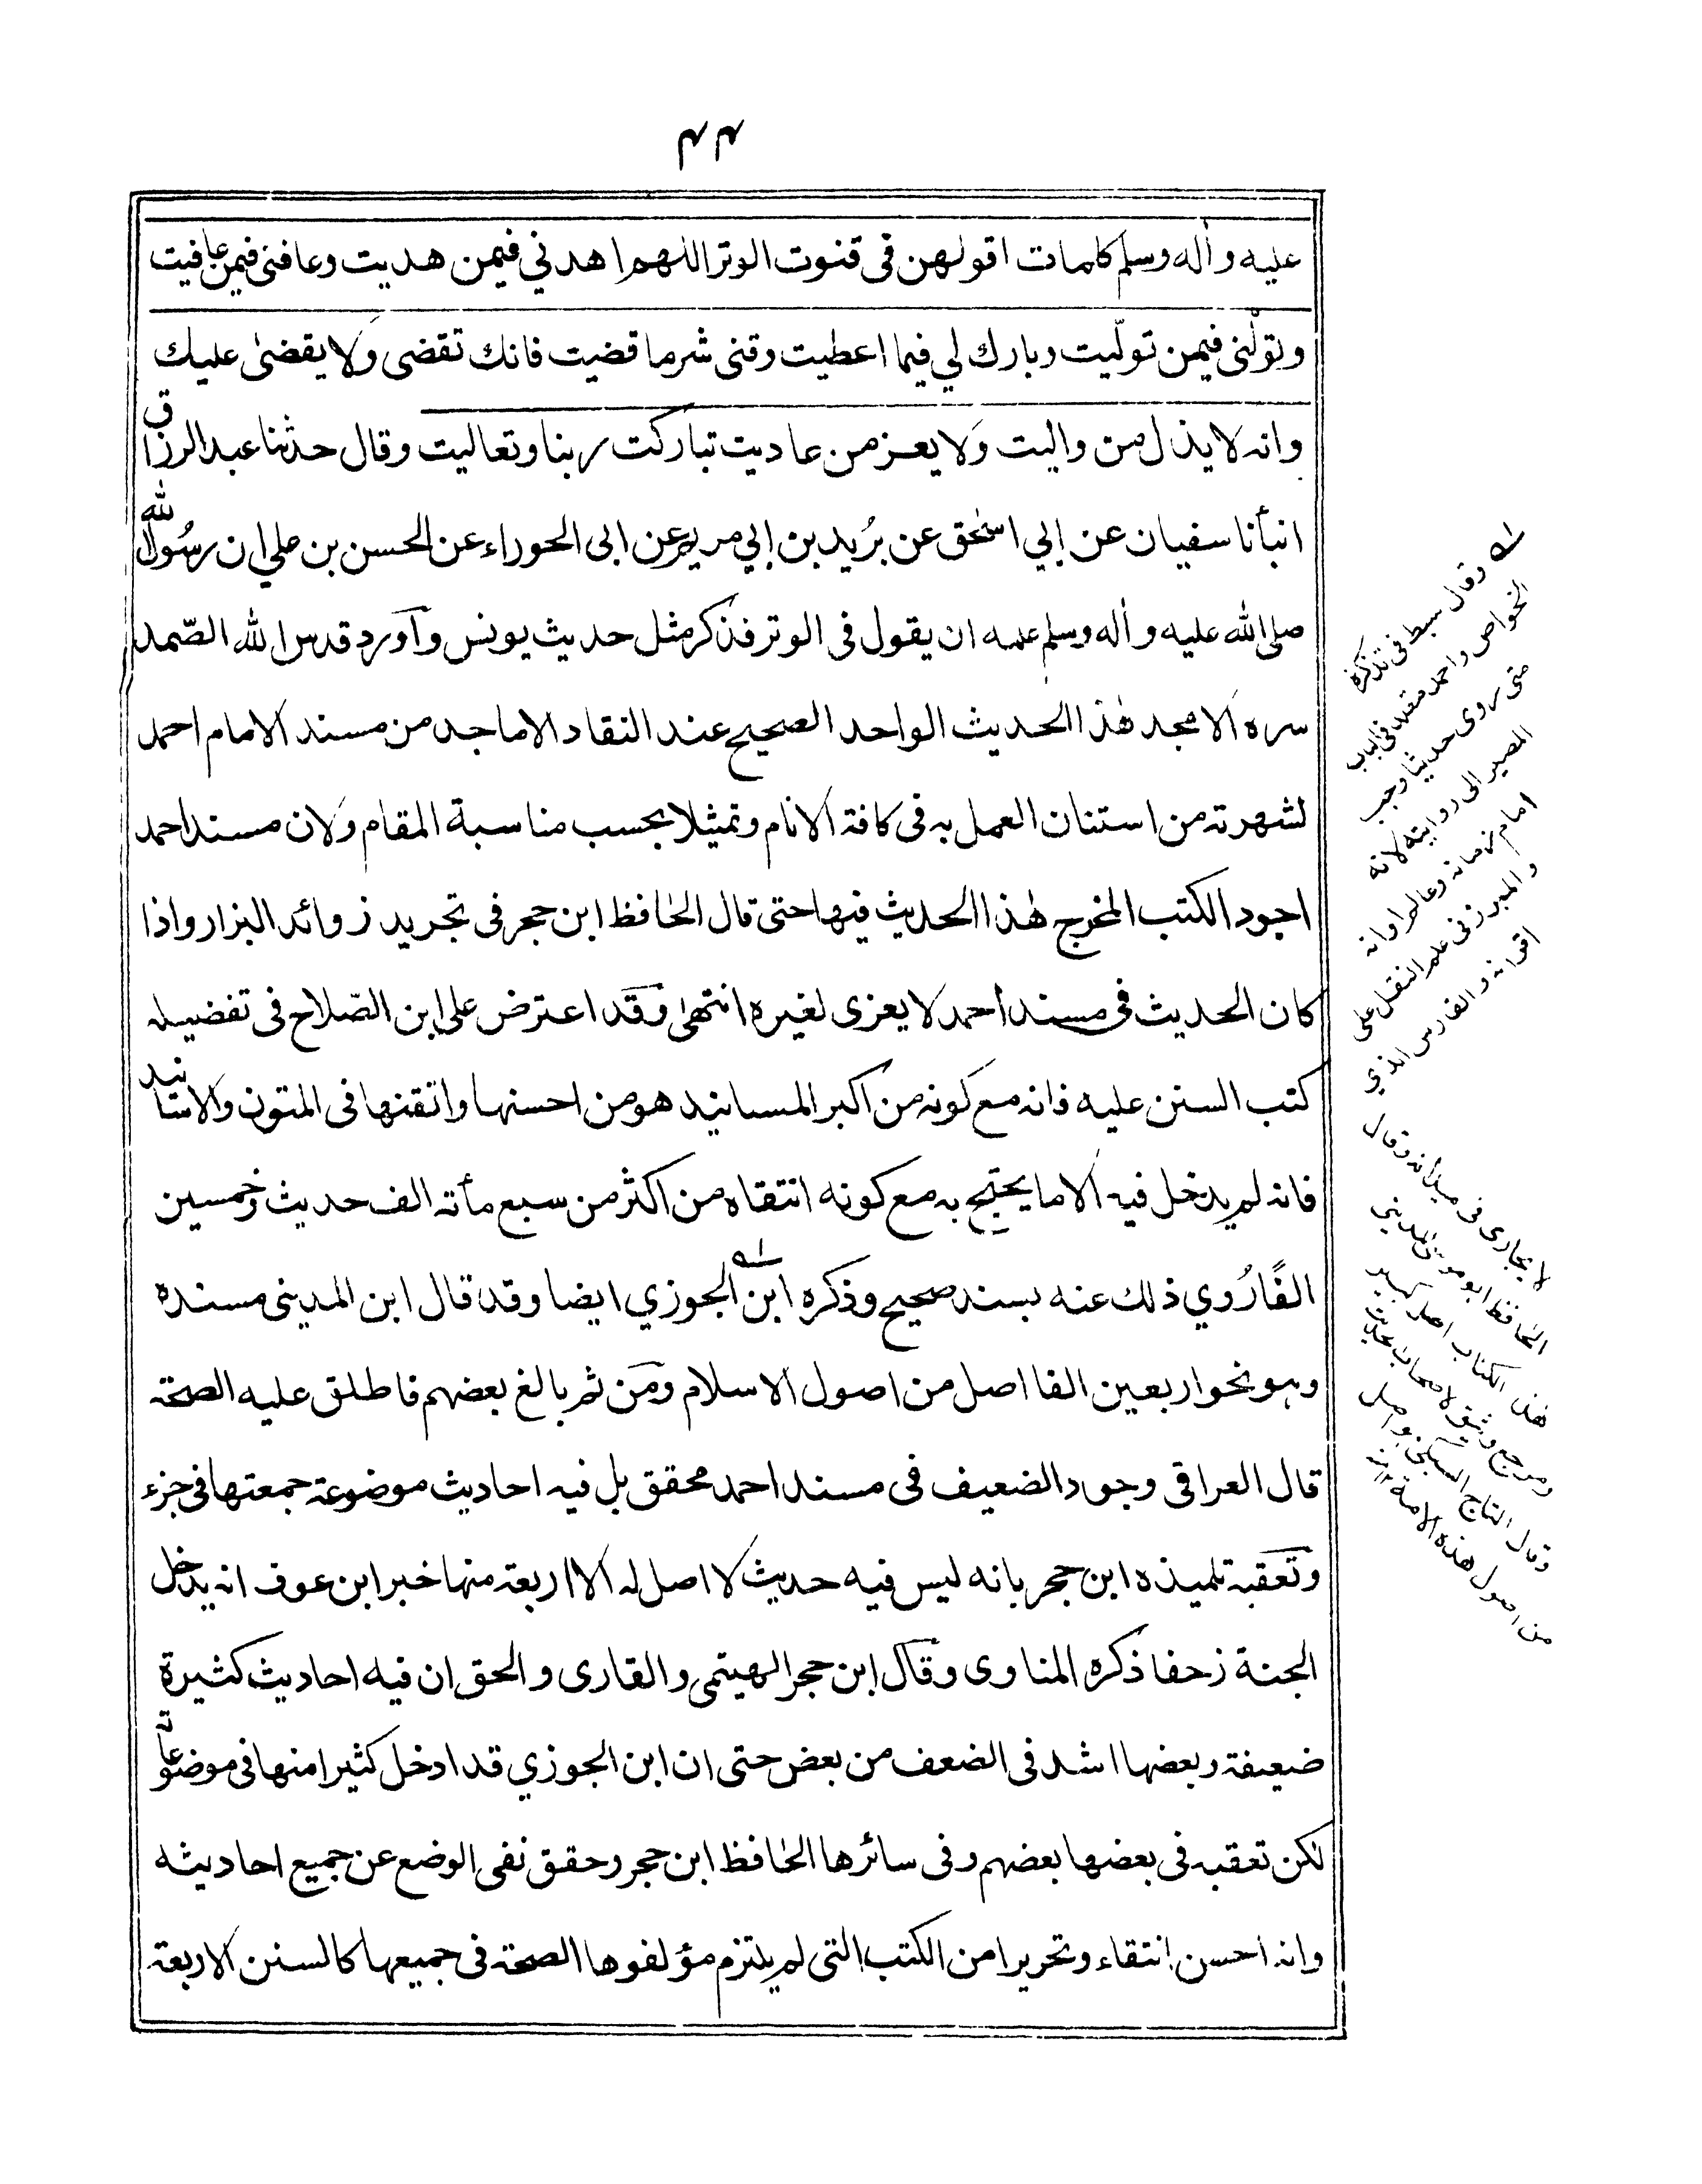 ٤٤
عليه وآله وسلم كلمات اقولهن في قنوت الوتر اللهم اهدني فيمن هديت وعافني فيمن عافيت
وتولّني فيمن تولّيت وبارك لي فيما اعطيت وقني شر ما قضيت فانك تقضي ولا يقضىٰ عليك
وانه لا يذل من واليت ولا يعز من عاديت تباركت ربنا وتعاليت وقال حدثنا عبد الرزاق
انبأنا سفيان عن ابي اسحٰق عن بُريد بن ابي مريم عن ابي الحوراء عن الحسن بن علي ان رسُول الله
صلى الله عليه وآله وسلم علمه ان يقول في الوتر فذكر مثل حديث يونس وآورد قدس الله الصّمد
سره الامجد هٰذا الحديث الواحد الصحيح عند النقاد الاماجد من مسند الامام احمد
لشهرته من استنان العمل به في كافة الانام وتمثيلا بحسب مناسبة المقام ولان مسند احمد
اجود الكتب المخرج هٰذا الحديث فيها حتى قال الحافظ ابن حجر في تجريد زوائد البزار واذا
كان الحديث في مسند أحمد لا يعزى لغيره انتهىٰ وقد اعترض على ابن الصّلاح في تفضيله
كتب السنن عليه فانه مع كونه من اكبر المسانيد هو من احسنها واتقنها في المتون والاسانيد
فانه لم يدخل فيه الا ما يحتج به مع كونه انتقاه من اكثر من سبع مأته الف حديث وخمسين
الفًا رُوي ذلك عنه بسند صحيح وذكره ابن الجوزي ايضا وقد قال ابن المديني مسنده
وهو نحو اربعين الفا اصل من اصول الاسلام ومن ثم بالغ بعضهم فاطلق عليه الصحة
قال العراقي وجود الضعيف في مسند احمد محقق بل فيه احاديث موضوعة جمعتها في جزء
وتعقبه تلميذه ابن حجر بانه ليس فيه حديث لا اصل له الا اربعة منها خبر ابن عوف انه يدخل
الجنة زحفا ذكره المناوى وقال ابن حجر الهيتمي والقارى والحق ان فيه احاديث كثيرة
ضعيفة وبعضها اشد في الضعف من بعض حتى ان ابن الجوزي قد ادخل كثيرا منها في موضوعاته
لٰكن تعقبه في بعضها بعضهم وفي سائرها الحافظ ابن حجر وحقق نفي الوضع عن جميع احاديثه
وانه احسن انتقاء وتحريرا من الكتب التي لم يلتزم مؤلفوها الصحة في جميعها كالسنن الاربعة
وقال سبط في تذكرة
الخواص واحمد مقلد في الباب
متى روى حديثا وجب
المصير الى روايته لانه
امام زمانه وعالم اوانه
والمبرز في علم النقل على
اقرانه والفارس الذي
لا يجارى في ميدانه وقال
الحافظ ابو موسى المديني
هٰذا الكتاب اصل كبير
ومرجع وثيق لاصحاب الحديث
وقال التاج السبكي هو اصل
من اصول هذه الامة